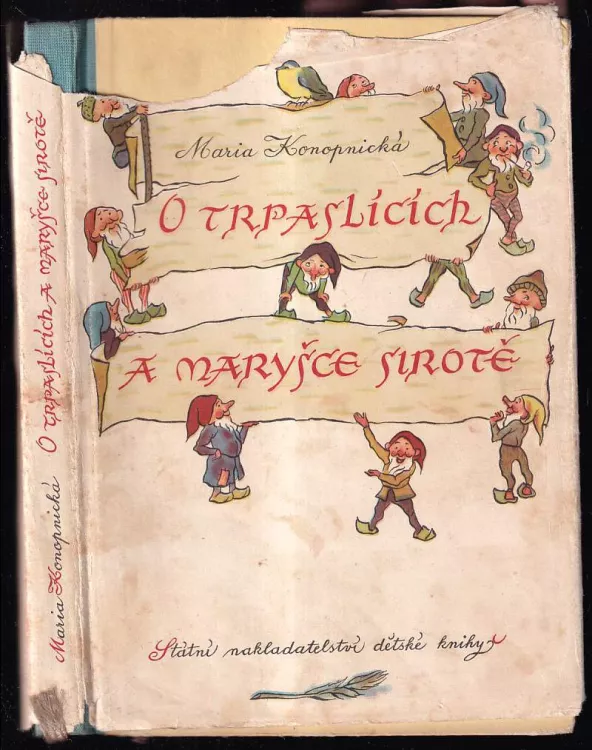 Maria Konopnická
O TRPASLÍCÍCH
A MARYŠCE SIROTĚ
Státní nakladatelství dětské knihy
Maria Konopnická O TRPASLÍCÍCH A MARYŠCE SIROTĚ